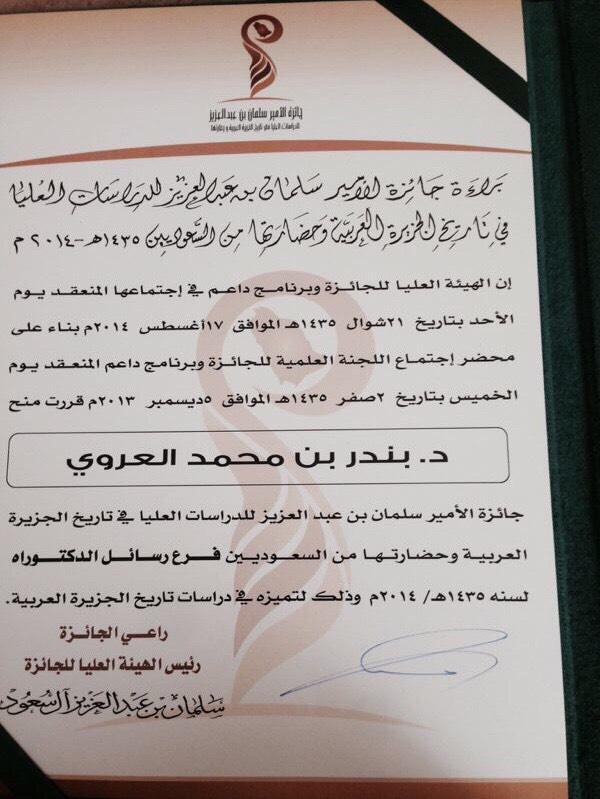 جائزة الأمير سلمان بن عبدالعزيز
للدراسات العليا في تاريخ الجزيرة العربية وحضارتها
براءة جائزة الأمير سلمان بن عبدالعزيز للدراسات العليا
في تاريخ الجزيرة العربية وحضارتها من السعوديين ١٤٣٥هـ-٢٠١٤م
إن الهيئة العليا للجائزة وبرنامج داعم في إجتماعها المنعقد يوم
الأحد بتاريخ ٢١شوال ١٤٣٥هـ الموافق ١٧أغسطس ٢٠١٤م بناء على
محضر إجتماع اللجنة العلمية للجائزة وبرنامج داعم المنعقد يوم
الخميس بتاريخ ٢صفر ١٤٣٥هـ الموافق ٥ديسمبر ٢٠١٣م قررت منح
د. بندر بن محمد العروي
جائزة الأمير سلمان بن عبد العزيز للدراسات العليا في تاريخ الجزيرة
العربية وحضارتها من السعوديين فرع رسائل الدكتوراه
لسنه ١٤٣٥هـ/ ٢٠١٤م وذلك لتميزه في دراسات تاريخ الجزيرة العربية.
راعي الجائزة
رئيس الهيئة العليا للجائزة
سلمان بن عبدالعزيز آل سعود